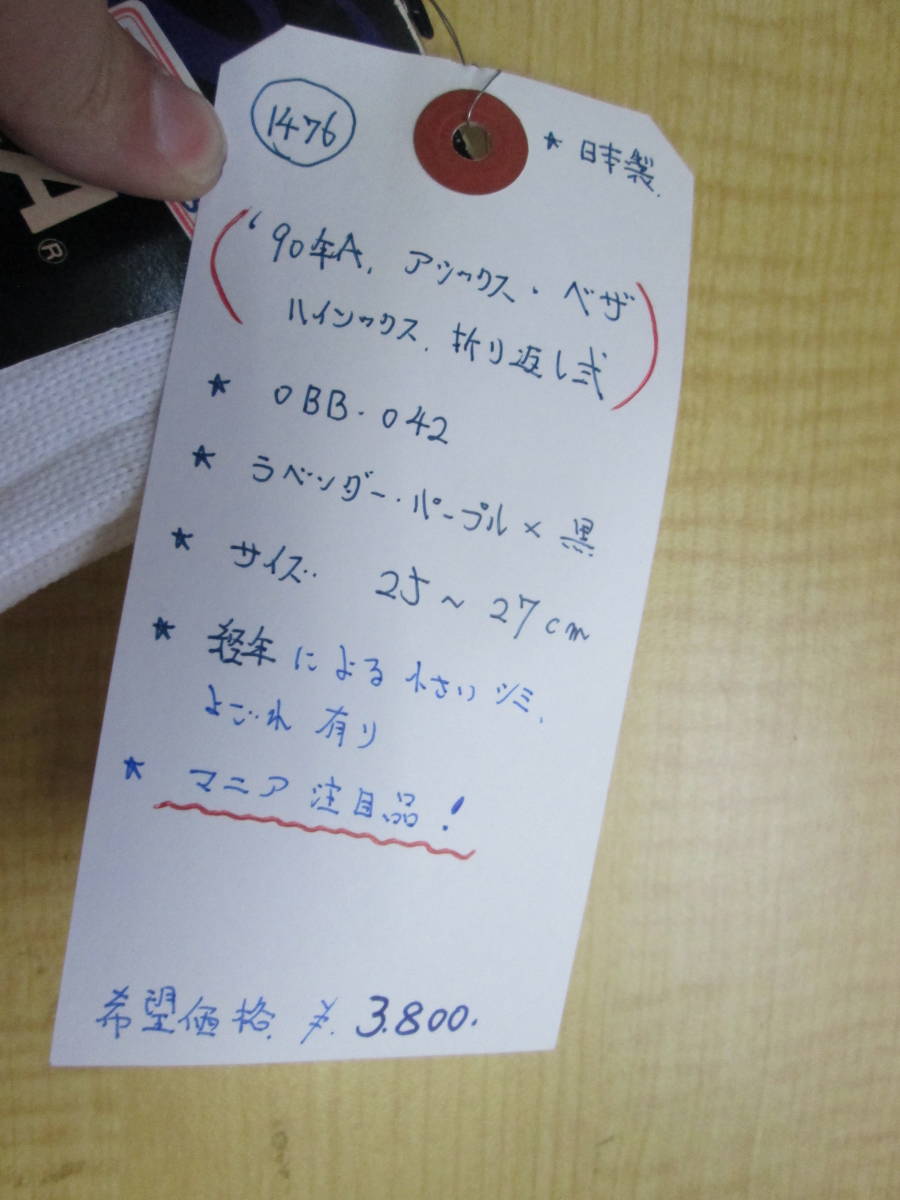 1476
★ 日本製.
('90年A. アシックス・ベザ
ハイソックス. 折り返し式)
★ OBB・042
★ ラベンダー・パープル × 黒
★ サイズ 25～27cm
★ 経年による小さいシミ、
よごれ 有り
★ マニア注目品!
希望価格. ¥. 3.800.
A®